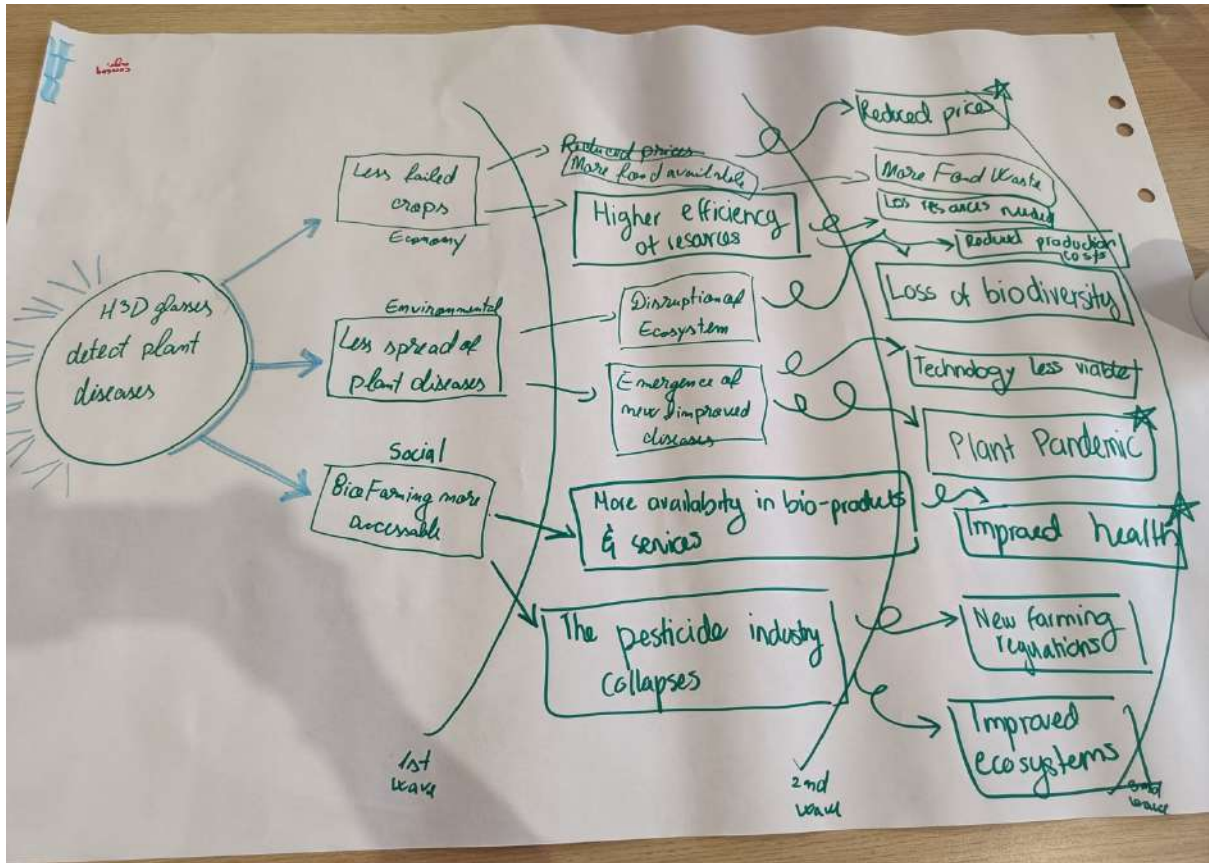 H3D glasses
detect plant
diseases
Less failed
crops
Economy
Environmental
Less spread of
plant diseases
Social
Bio Farming more
accessable
1st
wave
Reduced prices
More food available
Higher efficiency
of resarces
Disruption of
Ecosystem
Emergence of
new improved
diseases
More availabity in bio-products
& services
The pesticide industry
collapses
2nd
wave
Reduced prices
More Food Waste
Less resarces needed
Reduced production
costs
Loss of biodiversity
Technology less viable
Plant Pandemic
Impraed health
New farming
reguations
Improved
ecosystems
wave